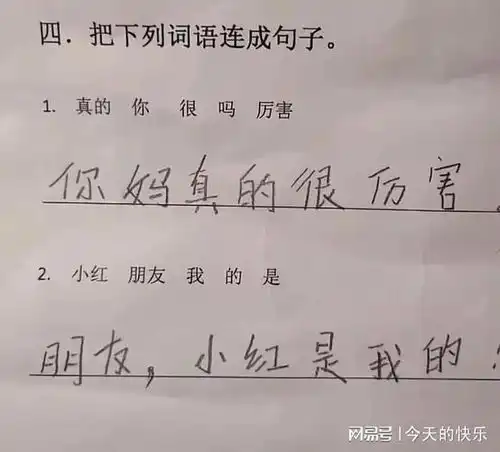 四．把下列词语连成句子。
1. 真的 你 很 吗 厉害
你妈真的很厉害。
2. 小红 朋友 我 的 是
朋友，小红是我的!
网易号 | 今天的快乐